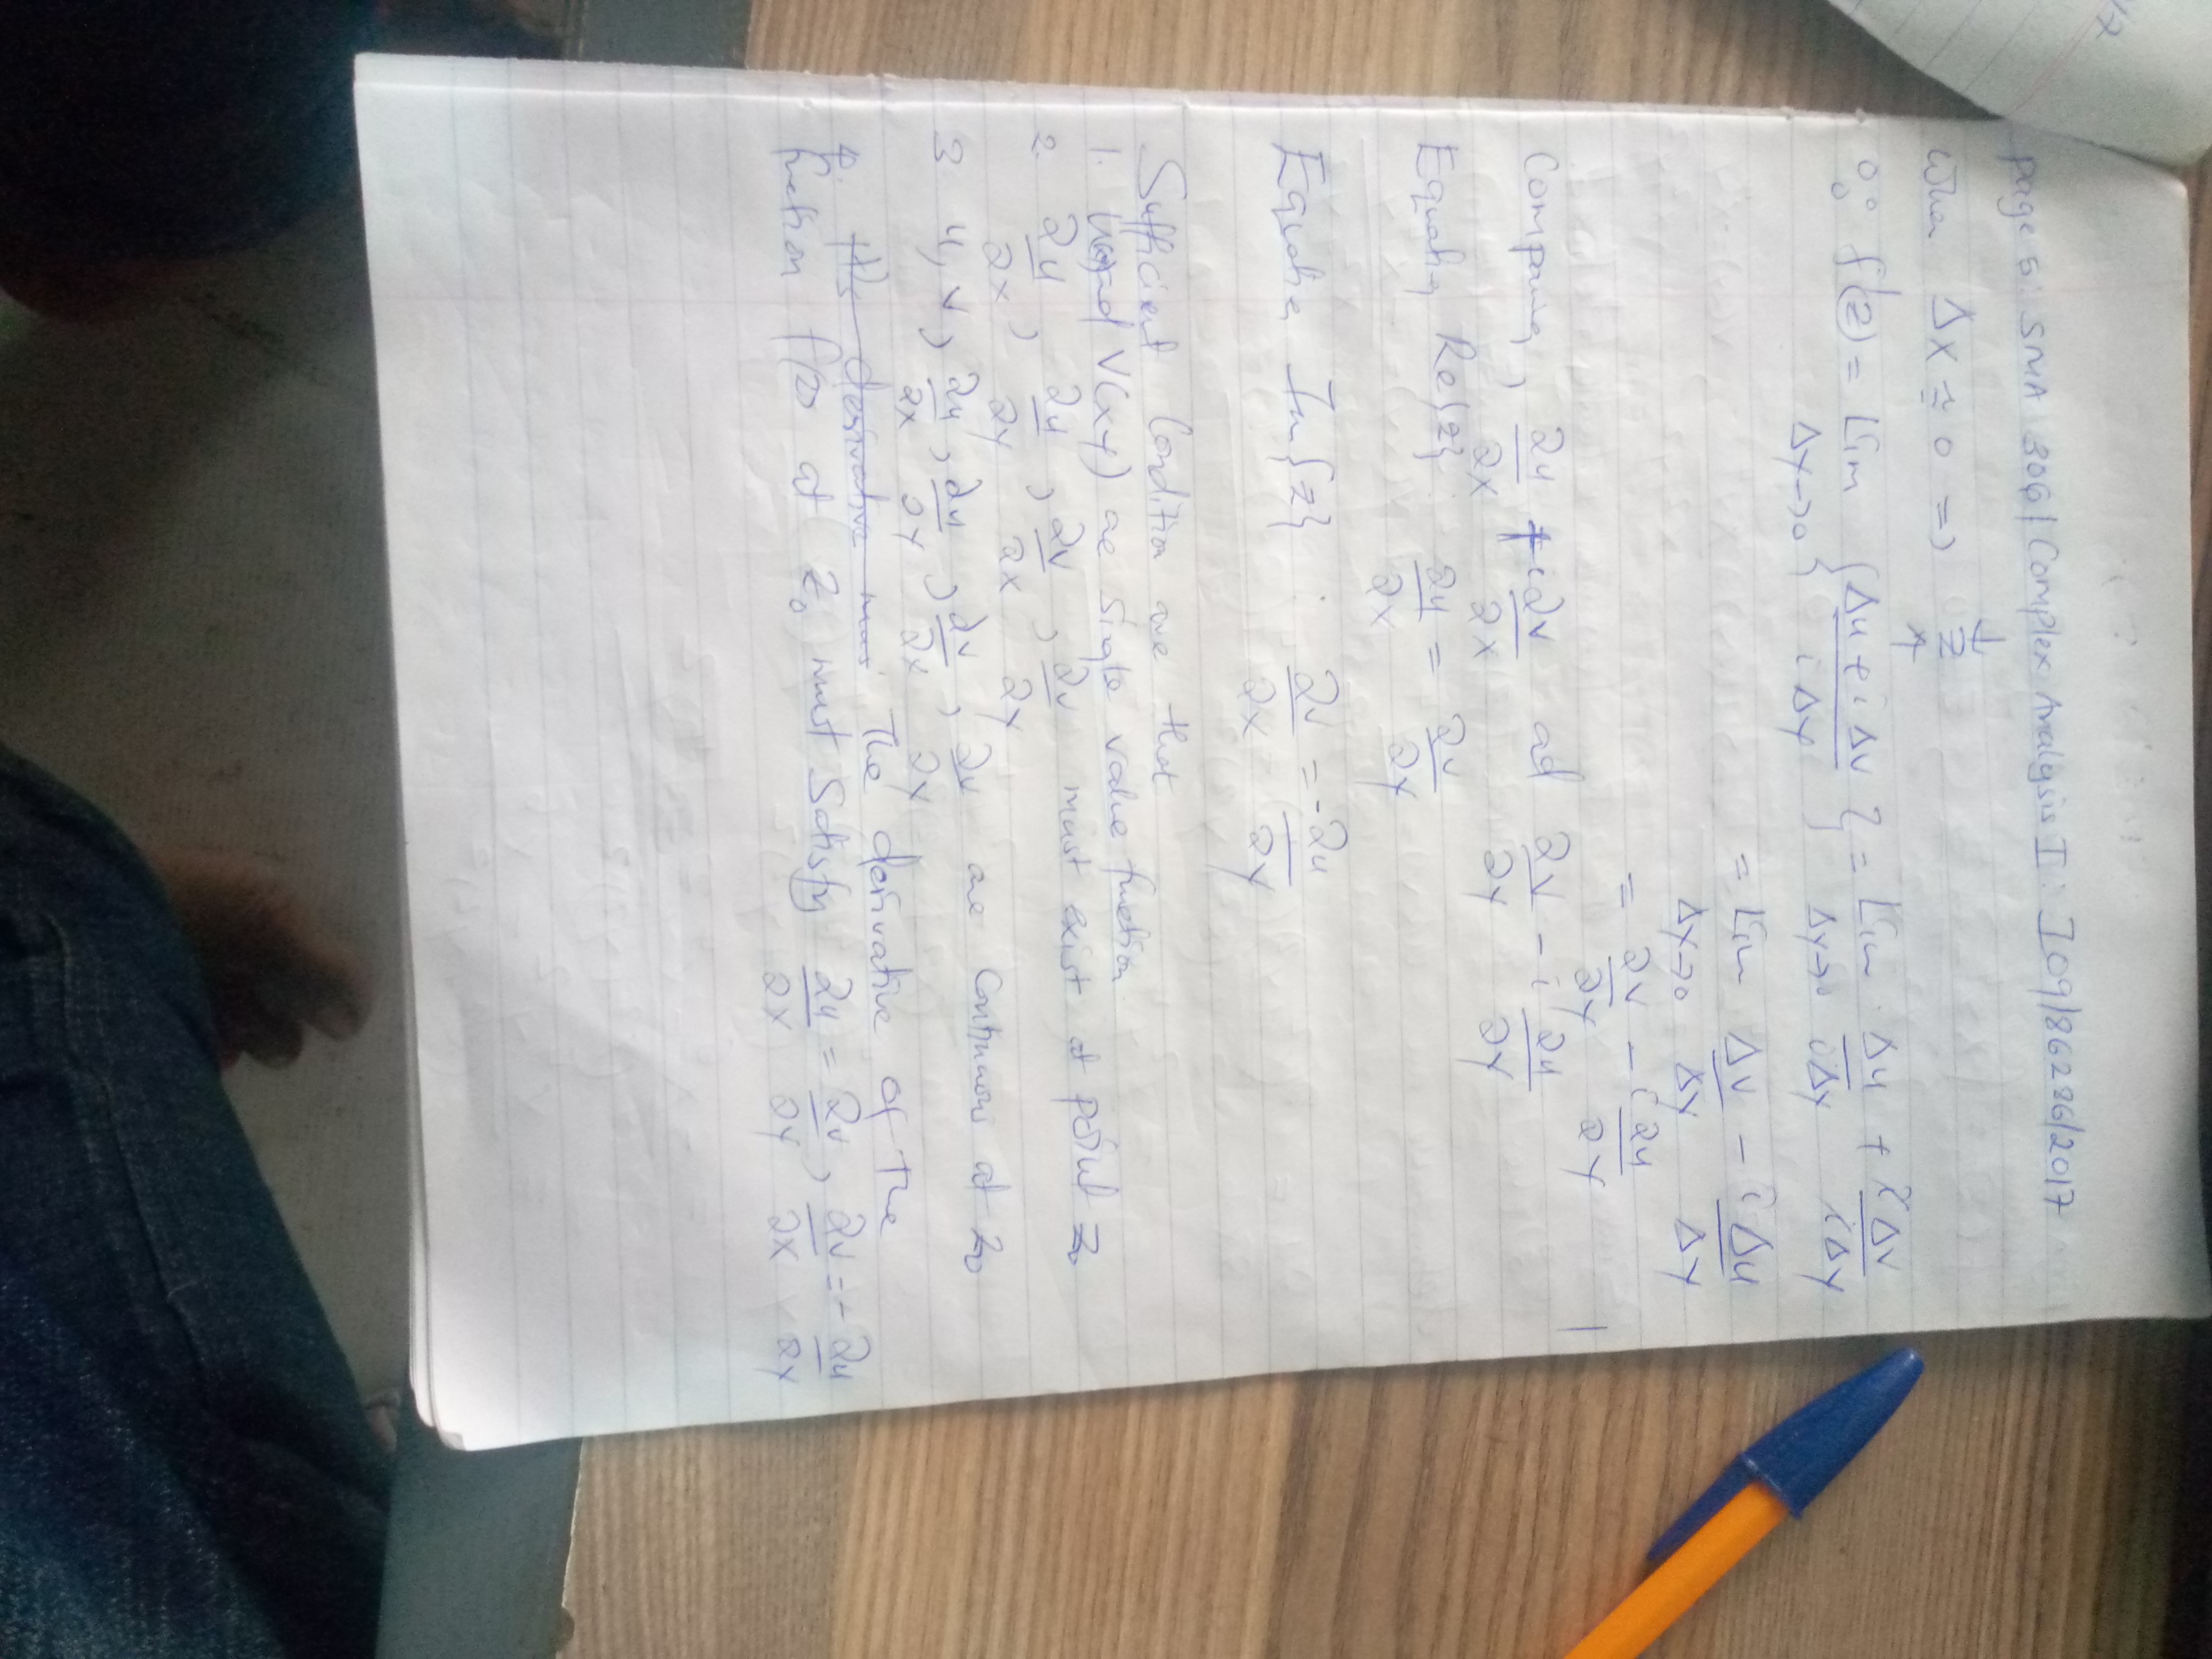 Page 5: SMA 306 | Complex Analysis I: I09/86286/2017
When Δx = 0 =>
∴ f(z) = Lim Δy→0 { Δu + i Δv / i Δy } = Lim Δy→0 Δu / iΔy + iΔv / iΔy
= Lim Δy→0 Δv / Δy - i Δu / Δy
= ∂v/∂y - i ∂u/∂y
Comparing, ∂u/∂x + i∂v/∂x ad ∂v/∂y - i ∂u/∂y
Equating Re{z} ∂u/∂x = ∂v/∂y
Equating Im{z} : ∂v/∂x = -∂u/∂y
Sufficient Condition are that
1. and V(xy) are Single value function
2. ∂u/∂x, ∂u/∂y, ∂v/∂x, ∂v/∂y must exist at point z₀
3 u, v, ∂u/∂x, du/∂y, dv/∂x, ∂v/∂y are Continuous at z₀
4. The derivative The derivative of The
function f(z) at z₀ must Satisfy ∂u/∂x = ∂v/∂y, ∂v/∂x = -∂u/∂y